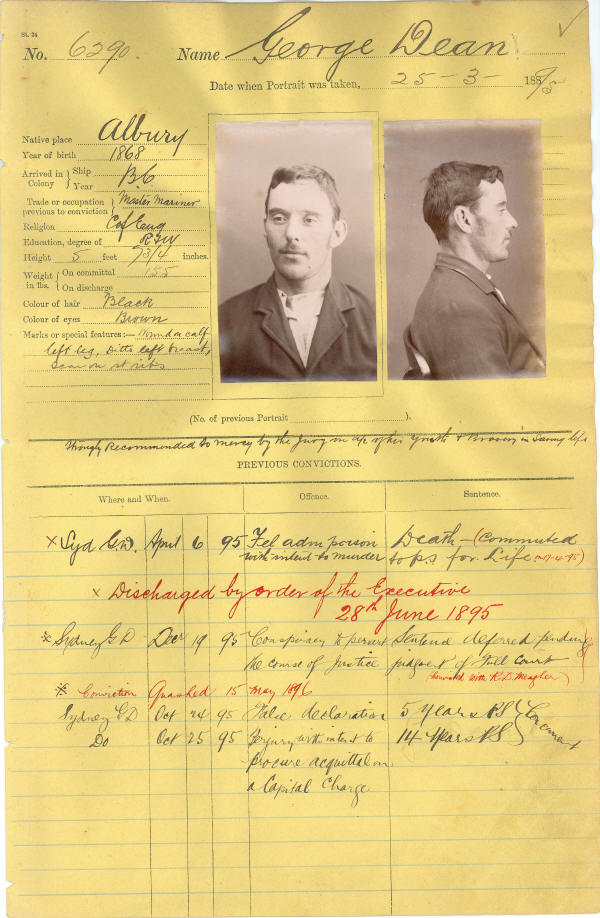 St. 24
No. 6290. Name George Dean
Date when Portrait was taken, 25-3- 1895
Native place Albury
Year of birth 1868
Arrived in Colony } Ship B.C
Year
Trade or occupation previous to conviction } Master Mariner
Religion Cof Eng
Education, degree of R&W
Height 5 feet 7 3/4 inches.
Weight in lbs. { On committal 155
On discharge
Colour of hair Black
Colour of eyes Brown
Marks or special features:— Wound on calf
left leg, Ditto left breast,
Scar on rt ribs
(No. of previous Portrait ).
Strongly Recommended to mercy by the Jury on a/c of his Youth & Bravery in Saving life
PREVIOUS CONVICTIONS.
Where and When. Offence. Sentence.
× Syd G.D. April 6 95 Fel adm poison Death - (Commuted
with intent to murder to p.s for Life
× Discharged by order of the Executive
28th June 1895
× Sydney G D Decr 19 95 Conspiracy to pervert Sentence deferred pending
the course of Justice judgment of Full Court
(convicted with R.D. Meagher)
※ Conviction Quashed 15 May 1896
Sydney C D Oct 24 95 False declaration 5 Years PS
Do Oct 25 95 Perjury with intent to 14 Years PS
procure acquittal on
a Capital Charge